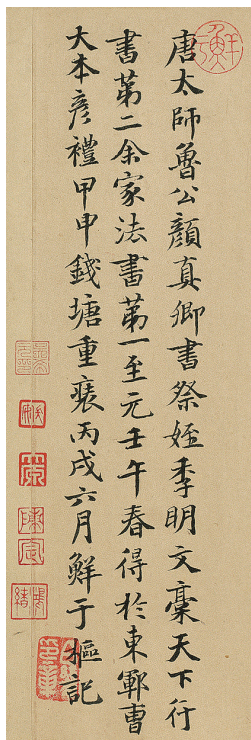 唐太師魯公顏真卿書祭姪季明文藁天下行
書第二余家法書第一至元壬午春得於東鄆曹
大本彥禮甲申錢塘重裝丙戌六月鮮于樞記